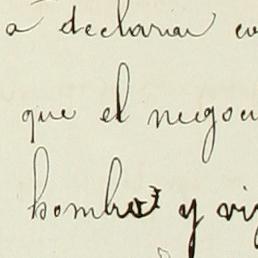 a declarar co
que el negocio
hombre y vi